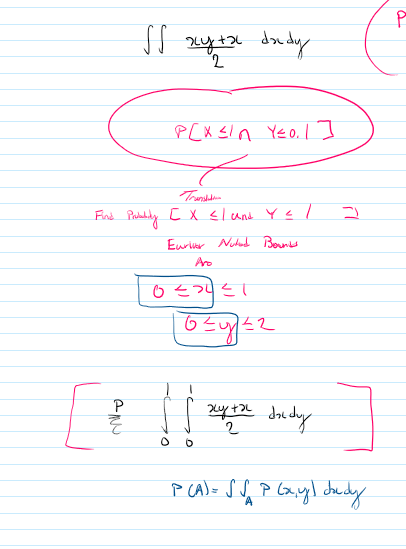 ∫∫ xy+x/2 dxdy
P
P[X ≤ 1 ∩ Y ≤ 0.1]
Translation
Find Probability [X ≤ 1 and Y ≤ 1]
Earlier Noted Bounds
Are
0 ≤ x ≤ 1
0 ≤ y ≤ 2
P ∫₀¹ ∫₀¹ xy+x/2 dxdy
P(A) = ∫∫_A P(x,y) dxdy